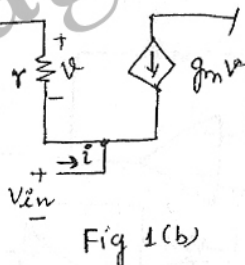 +
r v
−
↓ gₘv
→ i
+
Vin
−
Fig 1(b)